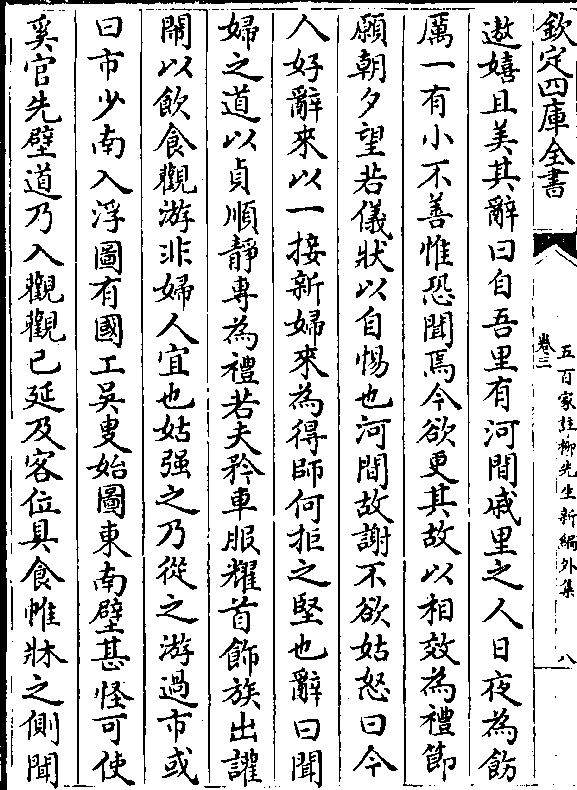 欽定四庫全書
五百家註柳先生新編外集
卷三
八
遨嬉且美其辭曰自吾里有河間戚里之人日夜為飭
厲一有小不善惟恐聞焉今欲更其故以相效為禮節
願朝夕望若儀狀以自惕也河間故謝不欲姑怒曰今
人好辭來以一接新婦來為得師何拒之堅也辭曰聞
婦之道以貞順靜專為禮若夫矜車服耀首飾族出讙
鬧以飲食觀游非婦人宜也姑强之乃從之游過市或
曰市少南入浮圖有國工吳叟始圖東南壁甚怪可使
奚官先壁道乃入觀觀已延及客位具食帷牀之側聞